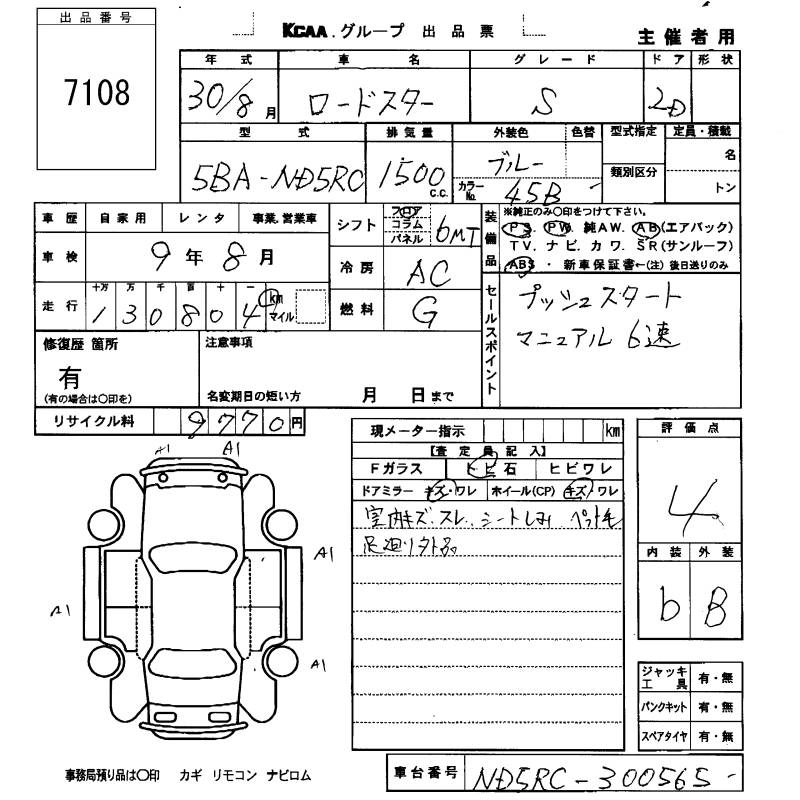 出品番号
7108
KCAA.グループ 出品票
主催者用
年式 車名 グレード ドア 形状
30/8月 ロードスター S 2D
型式 排気量 外装色 色替 型式指定 定員・積載
5BA-ND5RC 1500 c.c. ブルー 類別区分 名
カラーNo. 45B トン
車歴 自家用 レンタ 事業、営業車
車検 9年8月
走行 十万 万 千 百 十 一
130804 km マイル
シフト フロア コラム パネル 6MT
冷房 AC
燃料 G
装備品
※純正のみ〇印をつけて下さい。
PS. PW. 純AW. AB(エアバック)
TV. ナビ. カワ. SR(サンルーフ)
ABS ・ 新車保証書←(注) 後日送りのみ
セールスポイント
プッシュスタート
マニュアル 6速
修復歴 箇所
有
(有の場合は〇印を)
注意事項
名変期日の短い方 月 日まで
リサイクル料 9770円
現メーター指示 km
【査定員記入】
Fガラス トビ石 ヒビワレ
ドアミラー キズ・ワレ ホイール(CP) キズ/ワレ
室内キズ.スレ. シートしみ ペット毛
足廻り外品
評価点
4
内装 外装
b B
A1
A1
A1
A1
A1
ジャッキ工具 有・無
パンクキット 有・無
スペアタイヤ 有・無
事務局預り品は〇印 カギ リモコン ナビロム
車台番号 ND5RC-300565-